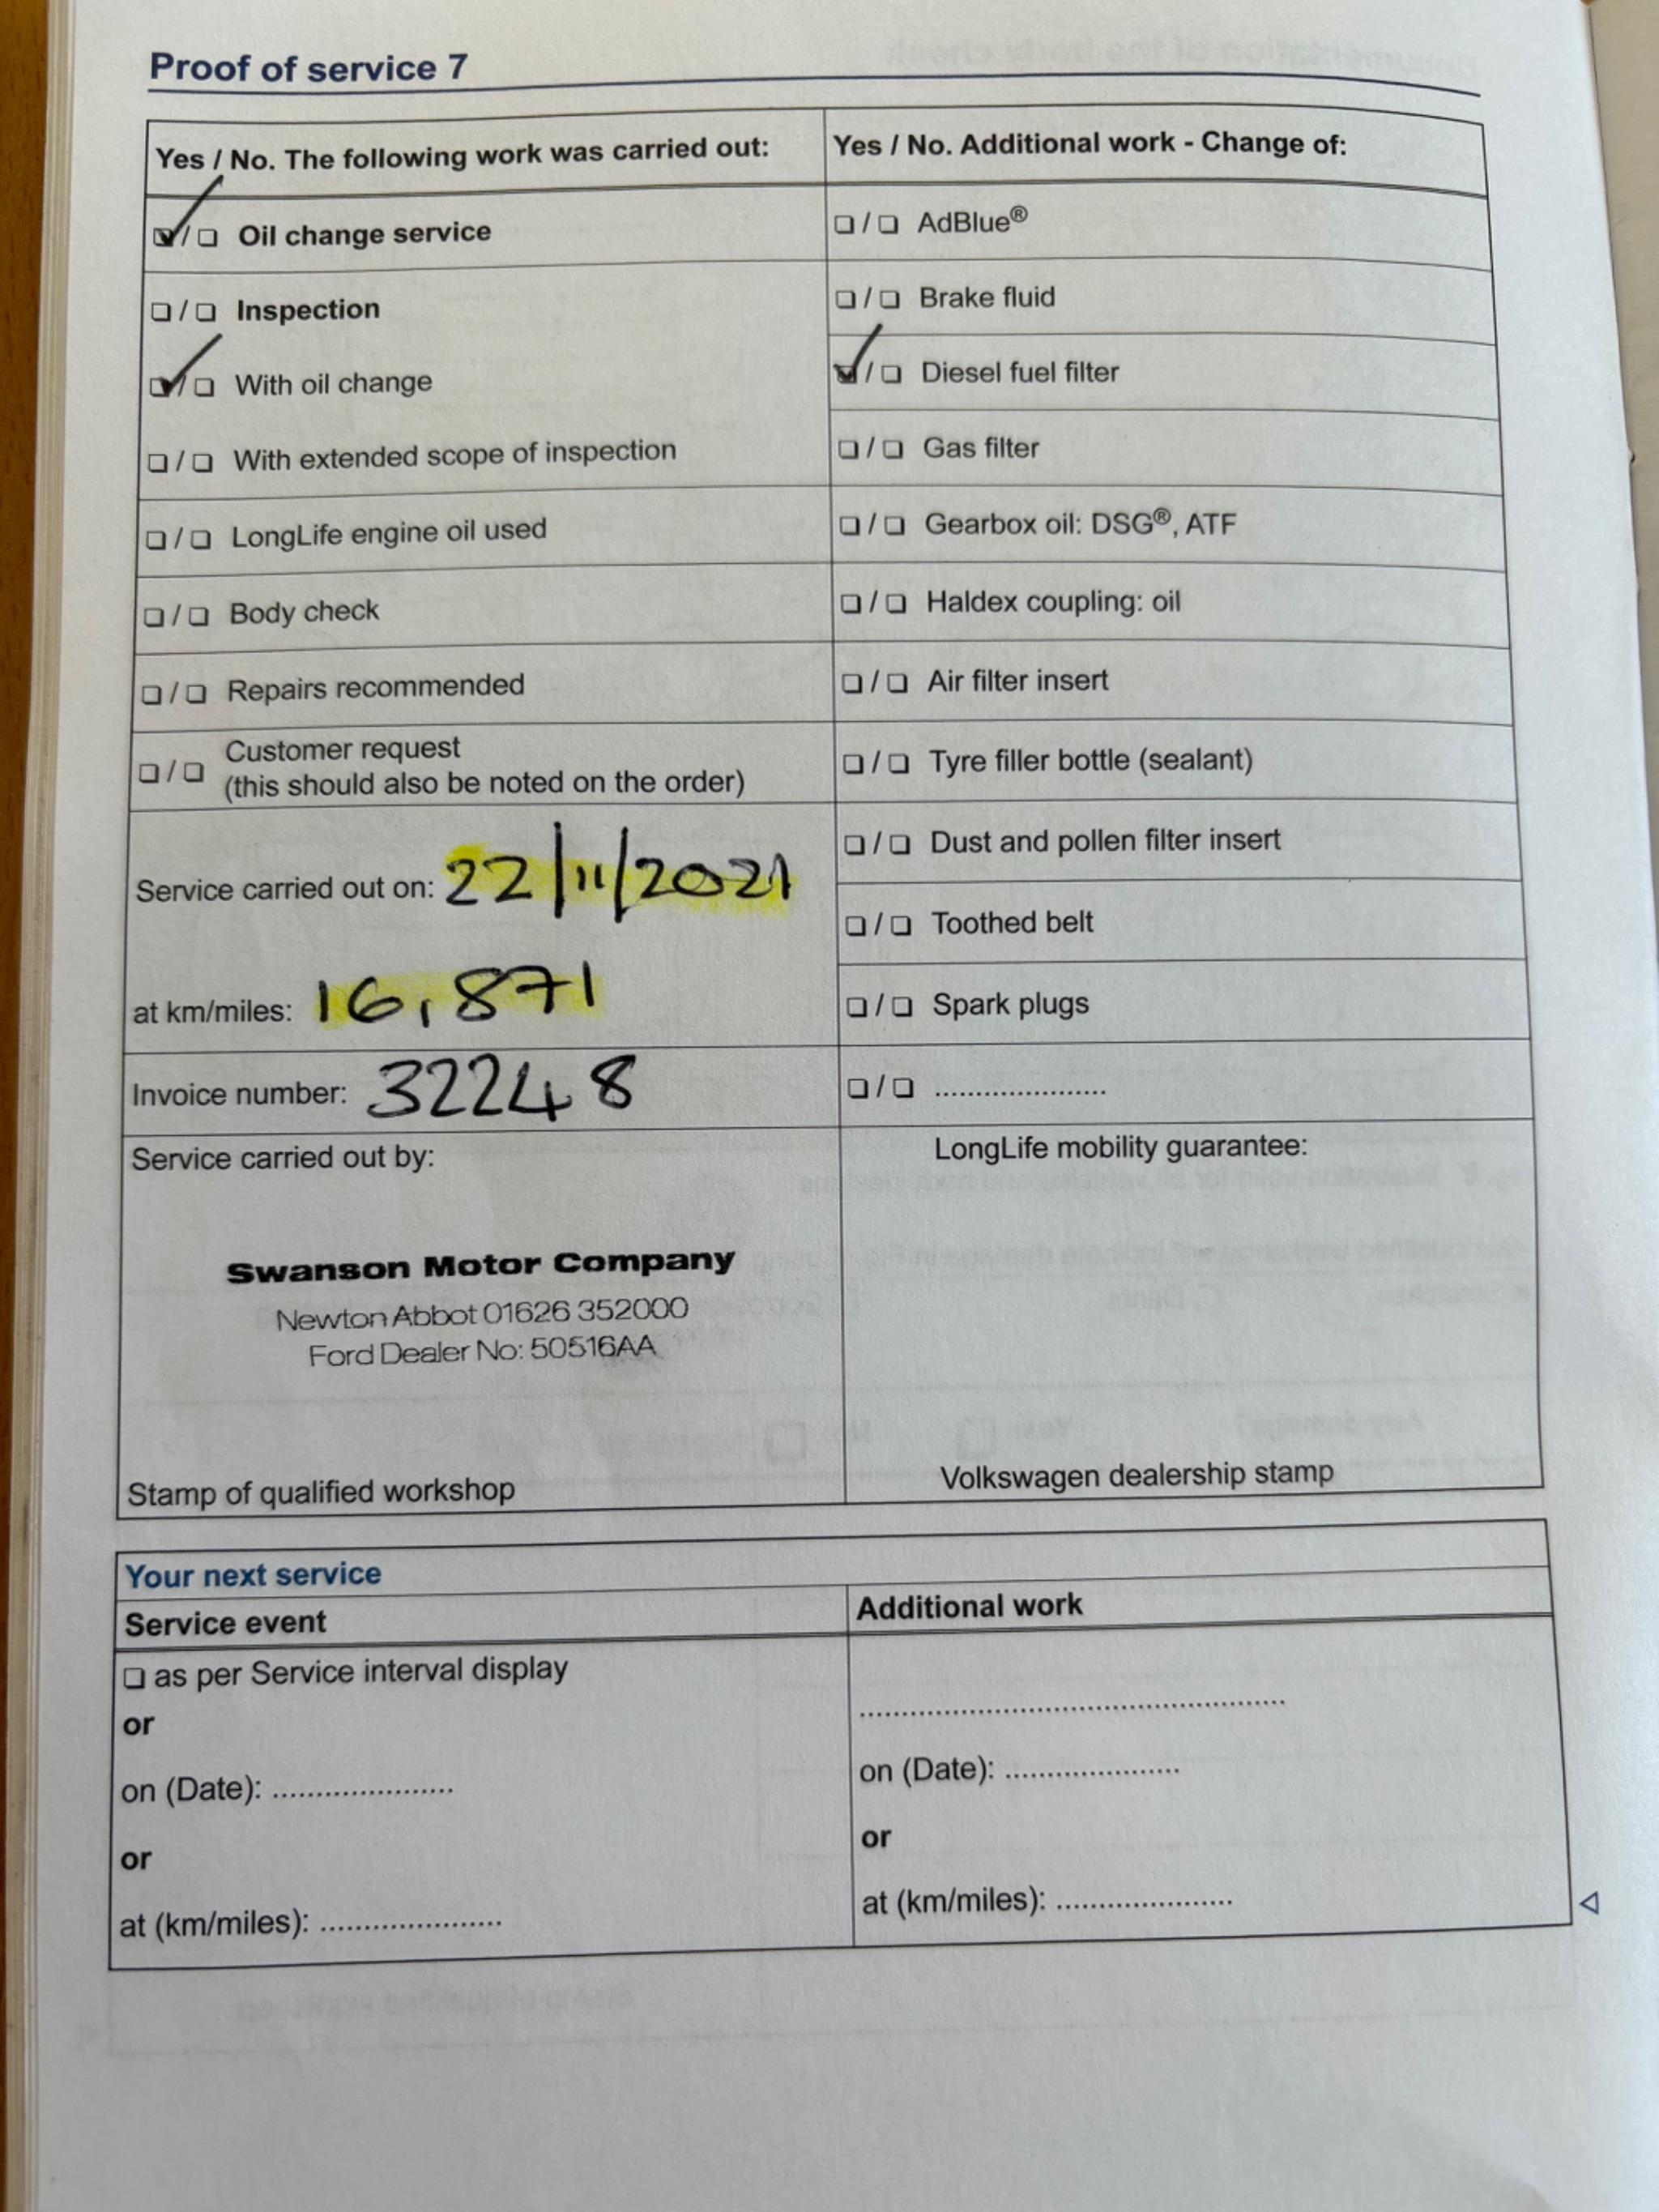 Proof of service 7
Yes / No. The following work was carried out:
☑/☐ Oil change service
☐/☐ Inspection
☑/☐ With oil change
☐/☐ With extended scope of inspection
☐/☐ LongLife engine oil used
☐/☐ Body check
☐/☐ Repairs recommended
☐/☐ Customer request
(this should also be noted on the order)
Service carried out on: 22/11/2021
at km/miles: 16,871
Invoice number: 32248
Service carried out by:
Swanson Motor Company
Newton Abbot 01626 352000
Ford Dealer No: 50516AA
Stamp of qualified workshop
Yes / No. Additional work - Change of:
☐/☐ AdBlue®
☐/☐ Brake fluid
☑/☐ Diesel fuel filter
☐/☐ Gas filter
☐/☐ Gearbox oil: DSG®, ATF
☐/☐ Haldex coupling: oil
☐/☐ Air filter insert
☐/☐ Tyre filler bottle (sealant)
☐/☐ Dust and pollen filter insert
☐/☐ Toothed belt
☐/☐ Spark plugs
☐/☐ .....................
LongLife mobility guarantee:
Volkswagen dealership stamp
Your next service
Service event
☐ as per Service interval display
or
on (Date): .....................
or
at (km/miles): .....................
Additional work
..................................................
on (Date): .....................
or
at (km/miles): .....................